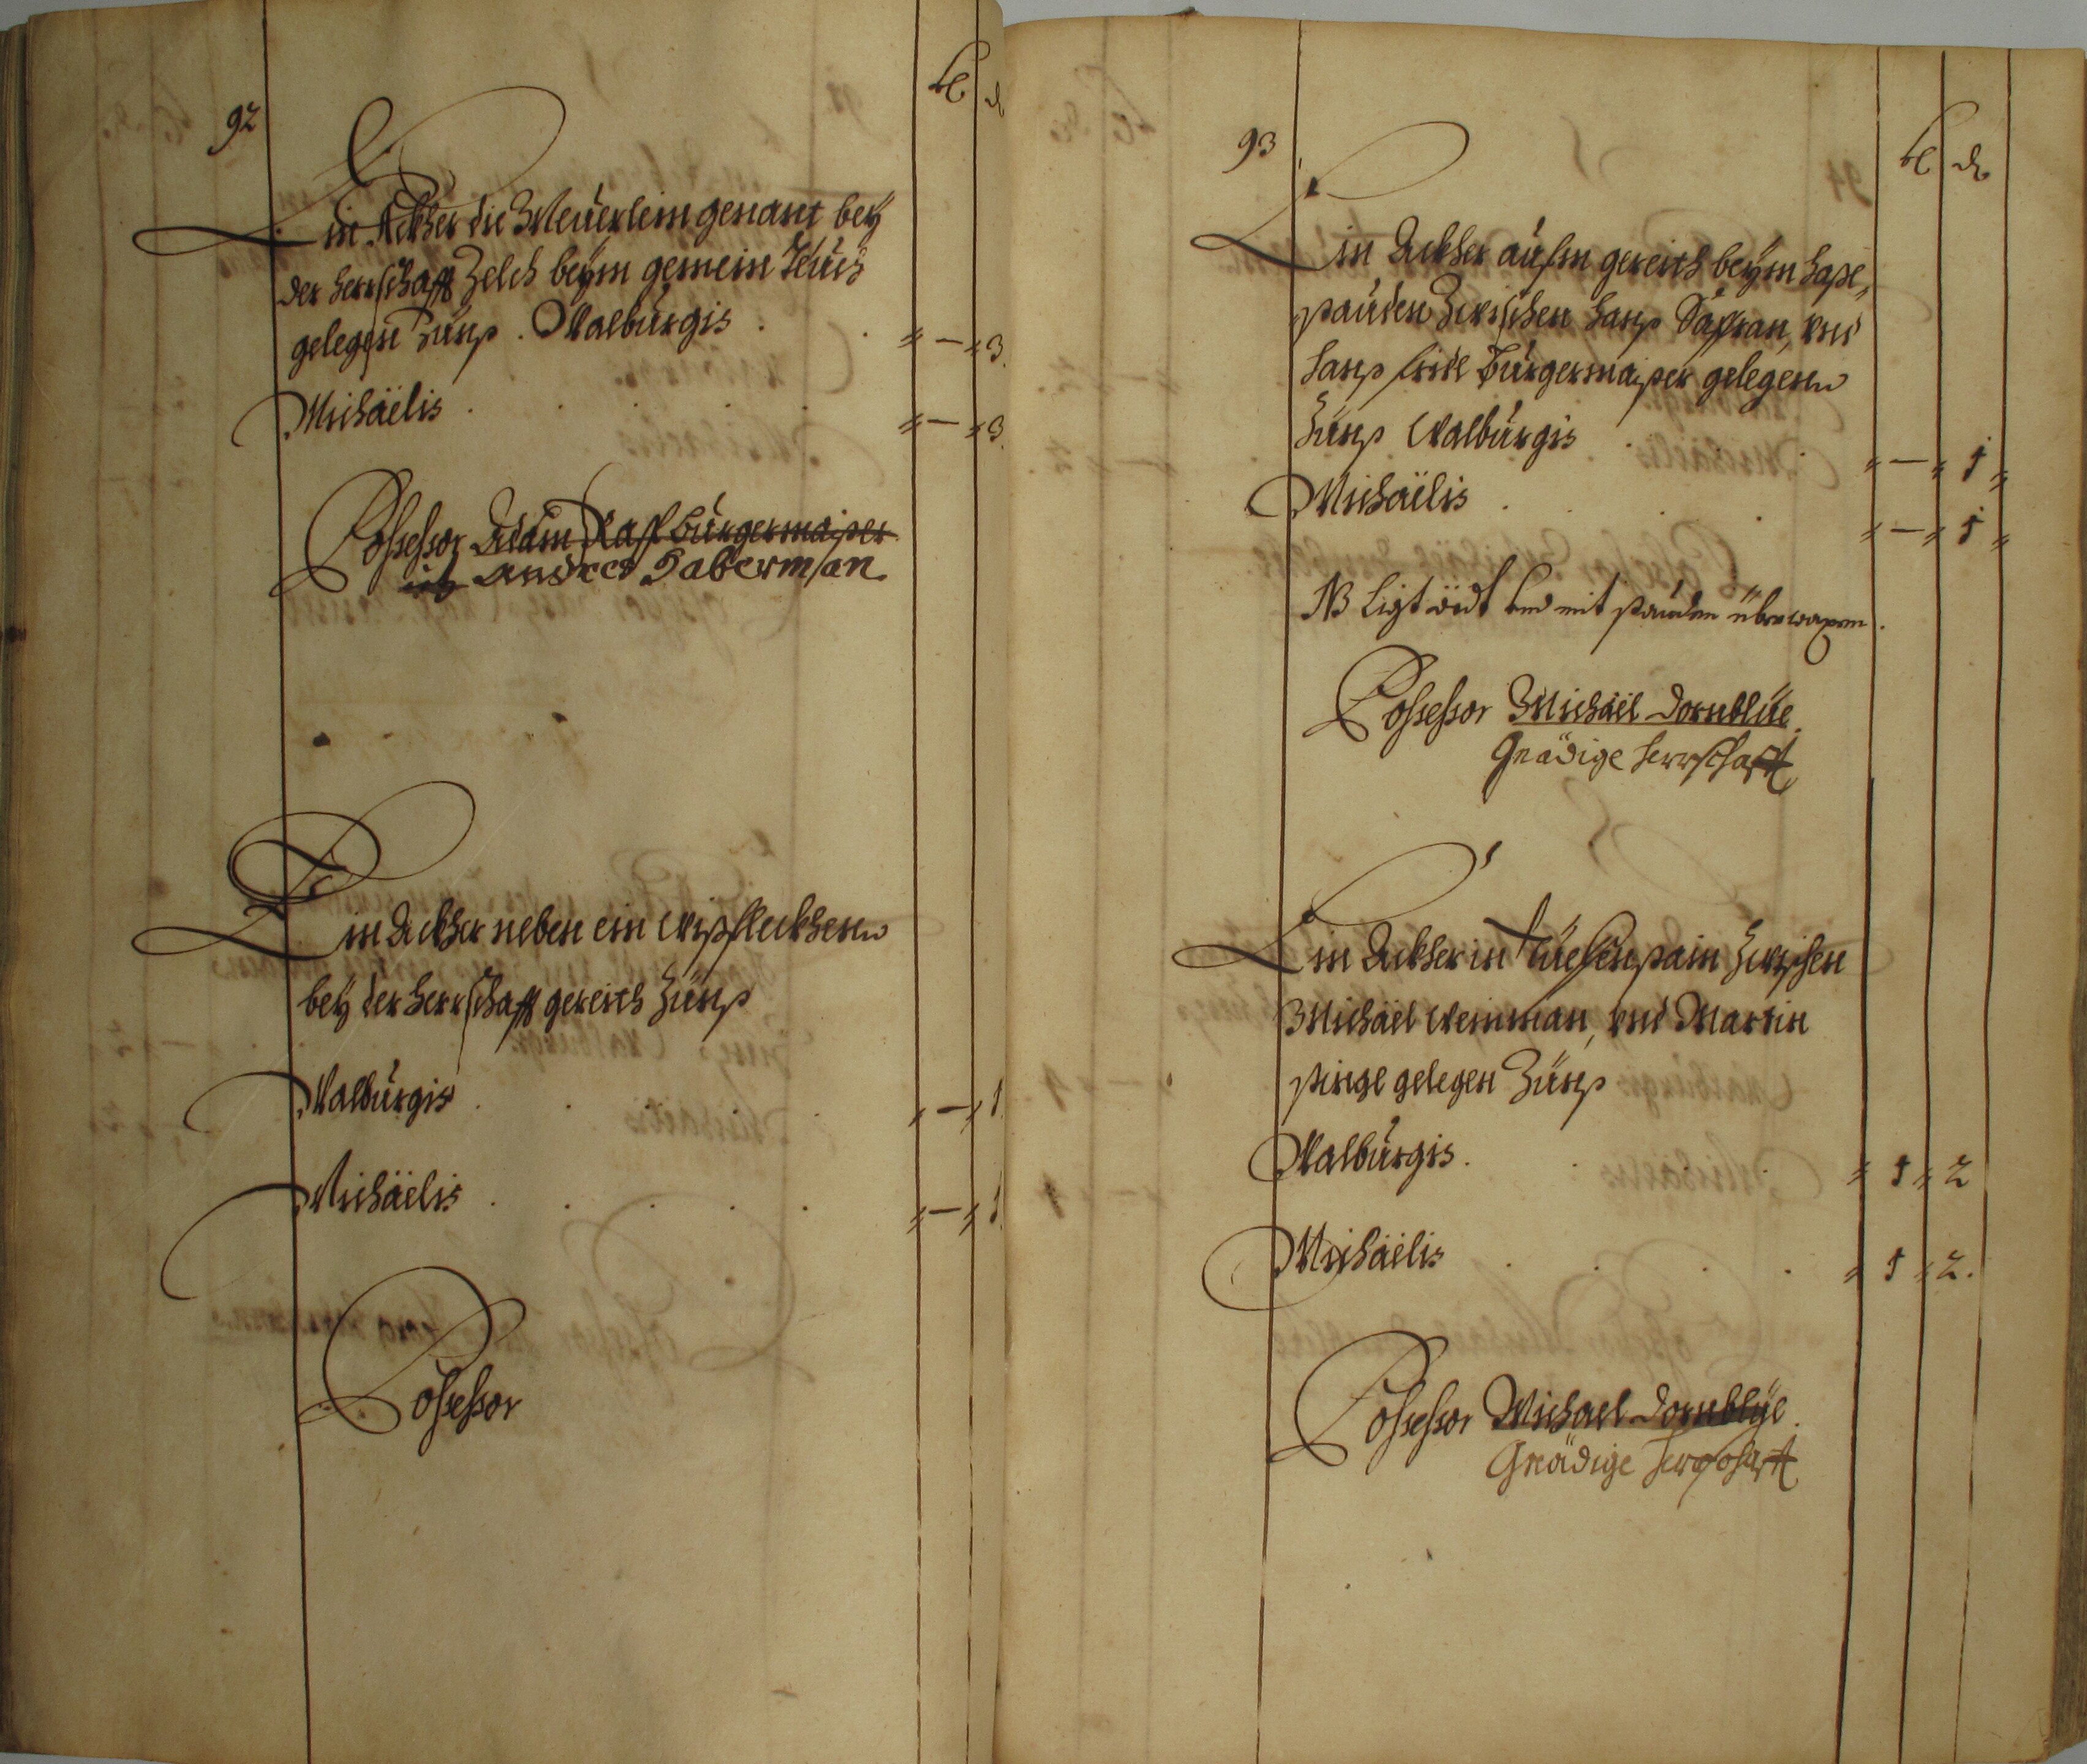 92
ß d
Ein Ackher die Meüerlein genant bey
der Herrschafft Zelch beym gemein Heüs
gelegen Zünß. Walburgis . . " — " 3.
Michäelis . . . . " — " 3.
Possessor Adam Rast Burgermaister
Andres Haberman
Ein Ackher neben ein Wißfleckhen
bey der Herrschafft gereith Zünß
Walburgis . . . " — " 1
Michäelis . . . . . " — " 1
Possessor
93
ß d
Ein Ackher aufm gereith beym Hasel
stauden Zwischen Hanß Saffran, und
Hanß Burgermaister gelegen
Zünß Walburgis . . " — " 1 "
Michäelis . . . . " — " 1 "
NB ligt ödt und mit stauden überwaxen.
Possessor Michäel Dornblüe.
Gnädige Herrschafft
Ein Ackher in Zwischen
Michäel Weinman, und Martin
gelegen Zünß
Walburgis . . . . " 1 " 2
Michäelis . . . . " 1 " 2.
Possessor Michael Dornblüe.
Gnädige Herrschafft